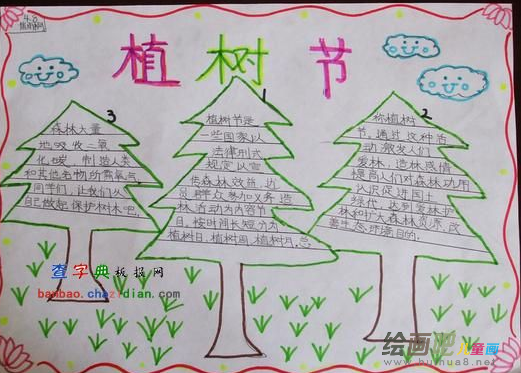 4.8
植树节
1
植树节是
一些国家以
法律形式
规定以宣
传森林效益,动
员群众参加义务造
林活动为内容节
日。按时间长短分为
植树日,植树周,植树月,总
2
称植树
节。通过这种活
动,激发人们
爱林,造林感情,
提高人们对森林功用
认识促进国土
绿化,达到爱林护
林和扩大森林资源,改
善生态环境目的.
3
森林大量
地吸收二氧
化碳,制造人类
和其他生物的需氧气,
同学们,让我们从
自己做起,保护树木吧.
查字典板报网
banbao.chazidian.com
绘画吧儿童画
www.huihua8.net